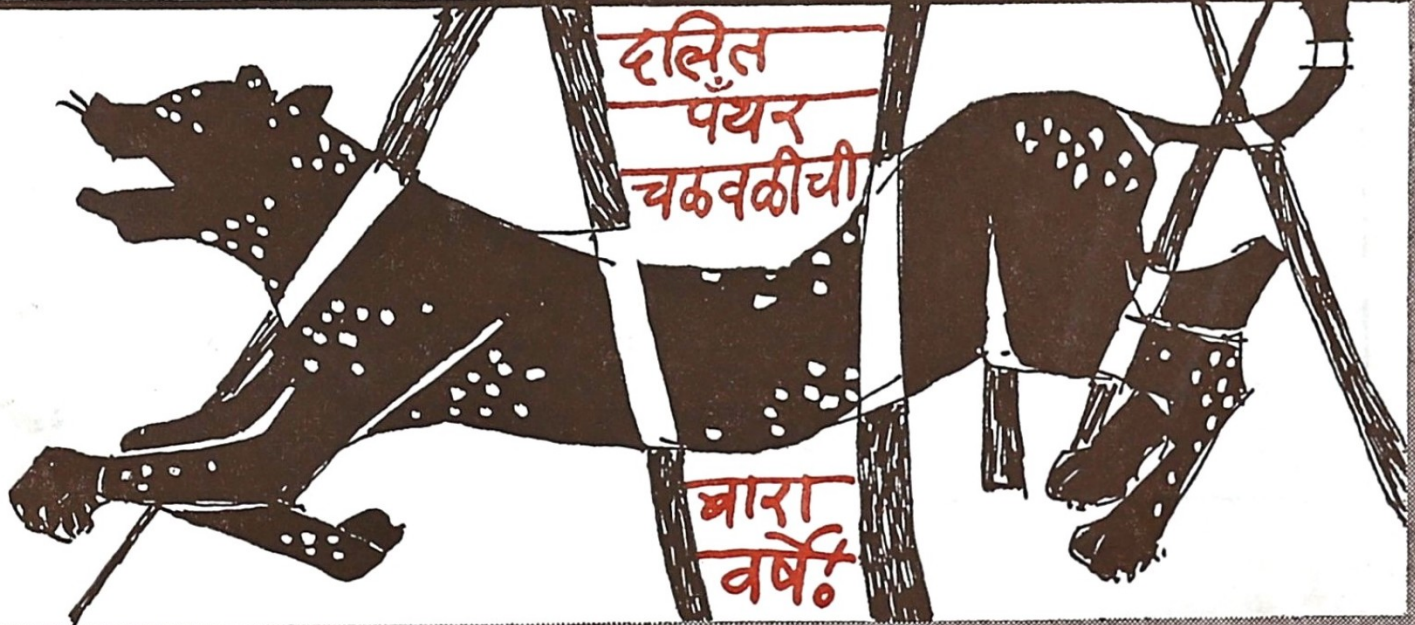 दलित
पँथर
चळवळीची
बारा
वर्षे!